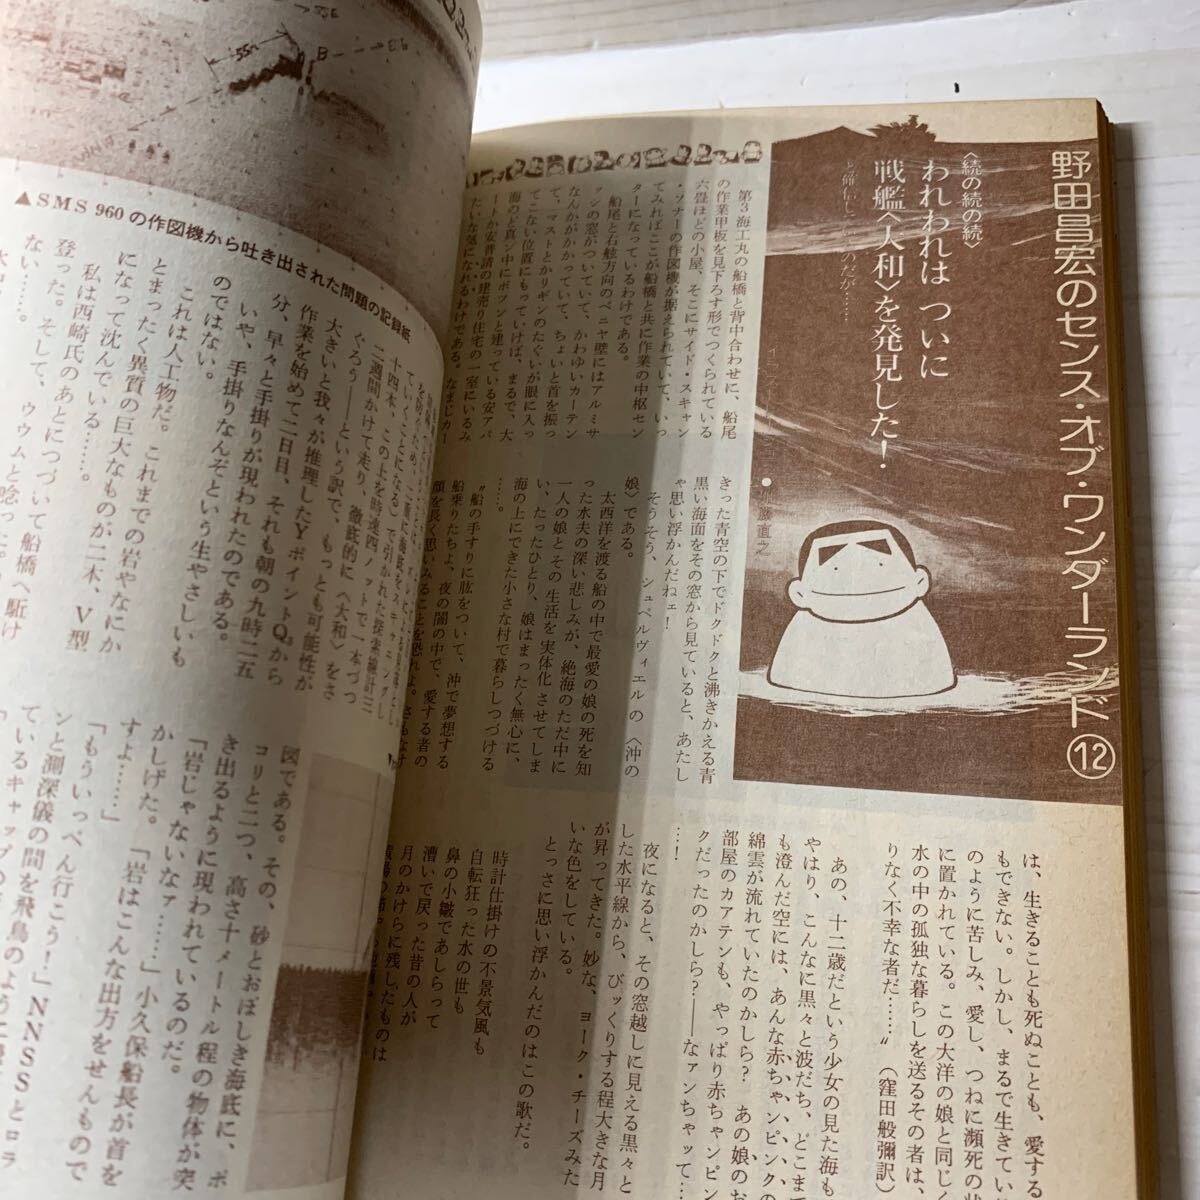 野田昌宏のセンス・オブ・ワンダーランド⑫
〈続の続の続〉
われわれは ついに
戦艦〈大和〉を発見した!
●加藤直之
第3海工丸の船橋と背中合わせに、船尾
の作業甲板を見下ろす形でつくられている
六畳ほどの小屋、そこにサイド・スキャン
・ソナーの作図機が据えられていて、いっ
てみればここが船橋と共に作業の中枢セン
ターになっているわけである。
船尾と右舷方向のベニヤ壁にはアルミサ
ッシの窓がついていて、かわゆいカーテン
なんかがかかっていて、ちょいと首を振っ
て、マストとかリギンのたぐいが眼に入っ
てこない位置にもっていけば、まるで、大
海のど真ン中にポツンと建っている安アパ
ートか安普請の建売り住宅の一室にいるみ
たいな気になれるわけである。なまじカー
きった青空の下でドクドクと沸きかえる青
黒い海面をその窓から見ていると、あたし
ゃ思い浮かんだねェ!
そうそう、シュペルヴィエルの〈沖の
娘〉である。
太西洋を渡る船の中で最愛の娘の死を知
った水夫の深い悲しみが、絶海のただ中に
一人の娘とその生活を実体化させてしま
い、たったひとり、娘はまったく無心に、
海の上にできた小さな村で暮らしつづける
……。
〝船の手すりに肱をついて、沖で夢想する
船乗りたちよ、夜の闇の中で、愛する者の
顔を長く思いみることを恐れよ。さもなけ
は、生きることも死ぬことも、愛する
もできない。しかし、まるで生きてい
のように苦しみ、愛し、つねに瀕死の状
に置かれている。この大洋の娘と同じく
水の中の孤独な暮らしを送るその者は、
りなく不幸な者だ……〟(窪田般彌訳)
あの、十二歳だという少女の見た海も
やはり、こんなに黒々と波だち、どこま
も澄んだ空には、あんな赤ちゃンピンクの
綿雲が流れていたのかしら? あの娘のお
部屋のカアテンも、やっぱり赤ちゃンピン
クだったのかしら?――なァンちゃッて…
…!
夜になると、その窓越しに見える黒々と
した水平線から、びッくりする程大きな月
が昇ってきた。妙な、ヨーク・チーズみた
いな色をしている。
とっさに思い浮かんだのはこの歌だ。
時計仕掛けの不景気風も
自転狂った水の世も
鼻の小皺であしらって
漕いで戻った昔の人が
月のかけらに残したものは
▲SMS 960の作図機から吐き出された問題の記録紙
十四本、この上を時速四ノットで一本づつ
二週間かけて走り、徹底的に〈大和〉をさ
ぐろう――という訳で、もっとも可能性が
大きいと我々が推理したYポイントQ₃から
作業を始めて二日目、それも朝の九時二五
分、早々と手掛りが現われたのである。
いや、手掛りなんぞという生やさしいも
のではない。
これは人工物だ。これまでの岩やなにか
とまったく異質の巨大なものが二本、V型
になって沈んでいる……。
私は西崎氏のあとにつづいて船橋へ駈け
登った。そして、ウウムと唸った。
ない……。
図である。その、砂とおぼしき海底に、ポ
コリと二つ、高さ十メートル程の物体が突
き出るように現われているのだ。
「岩じゃないなァ……」小久保船長が首を
かしげた。「岩はこんな出方をせんもので
すよ……」
「もういっぺん行こう!」NNSSとロラ
ンと測深儀の間を飛鳥のように
ているキャップの